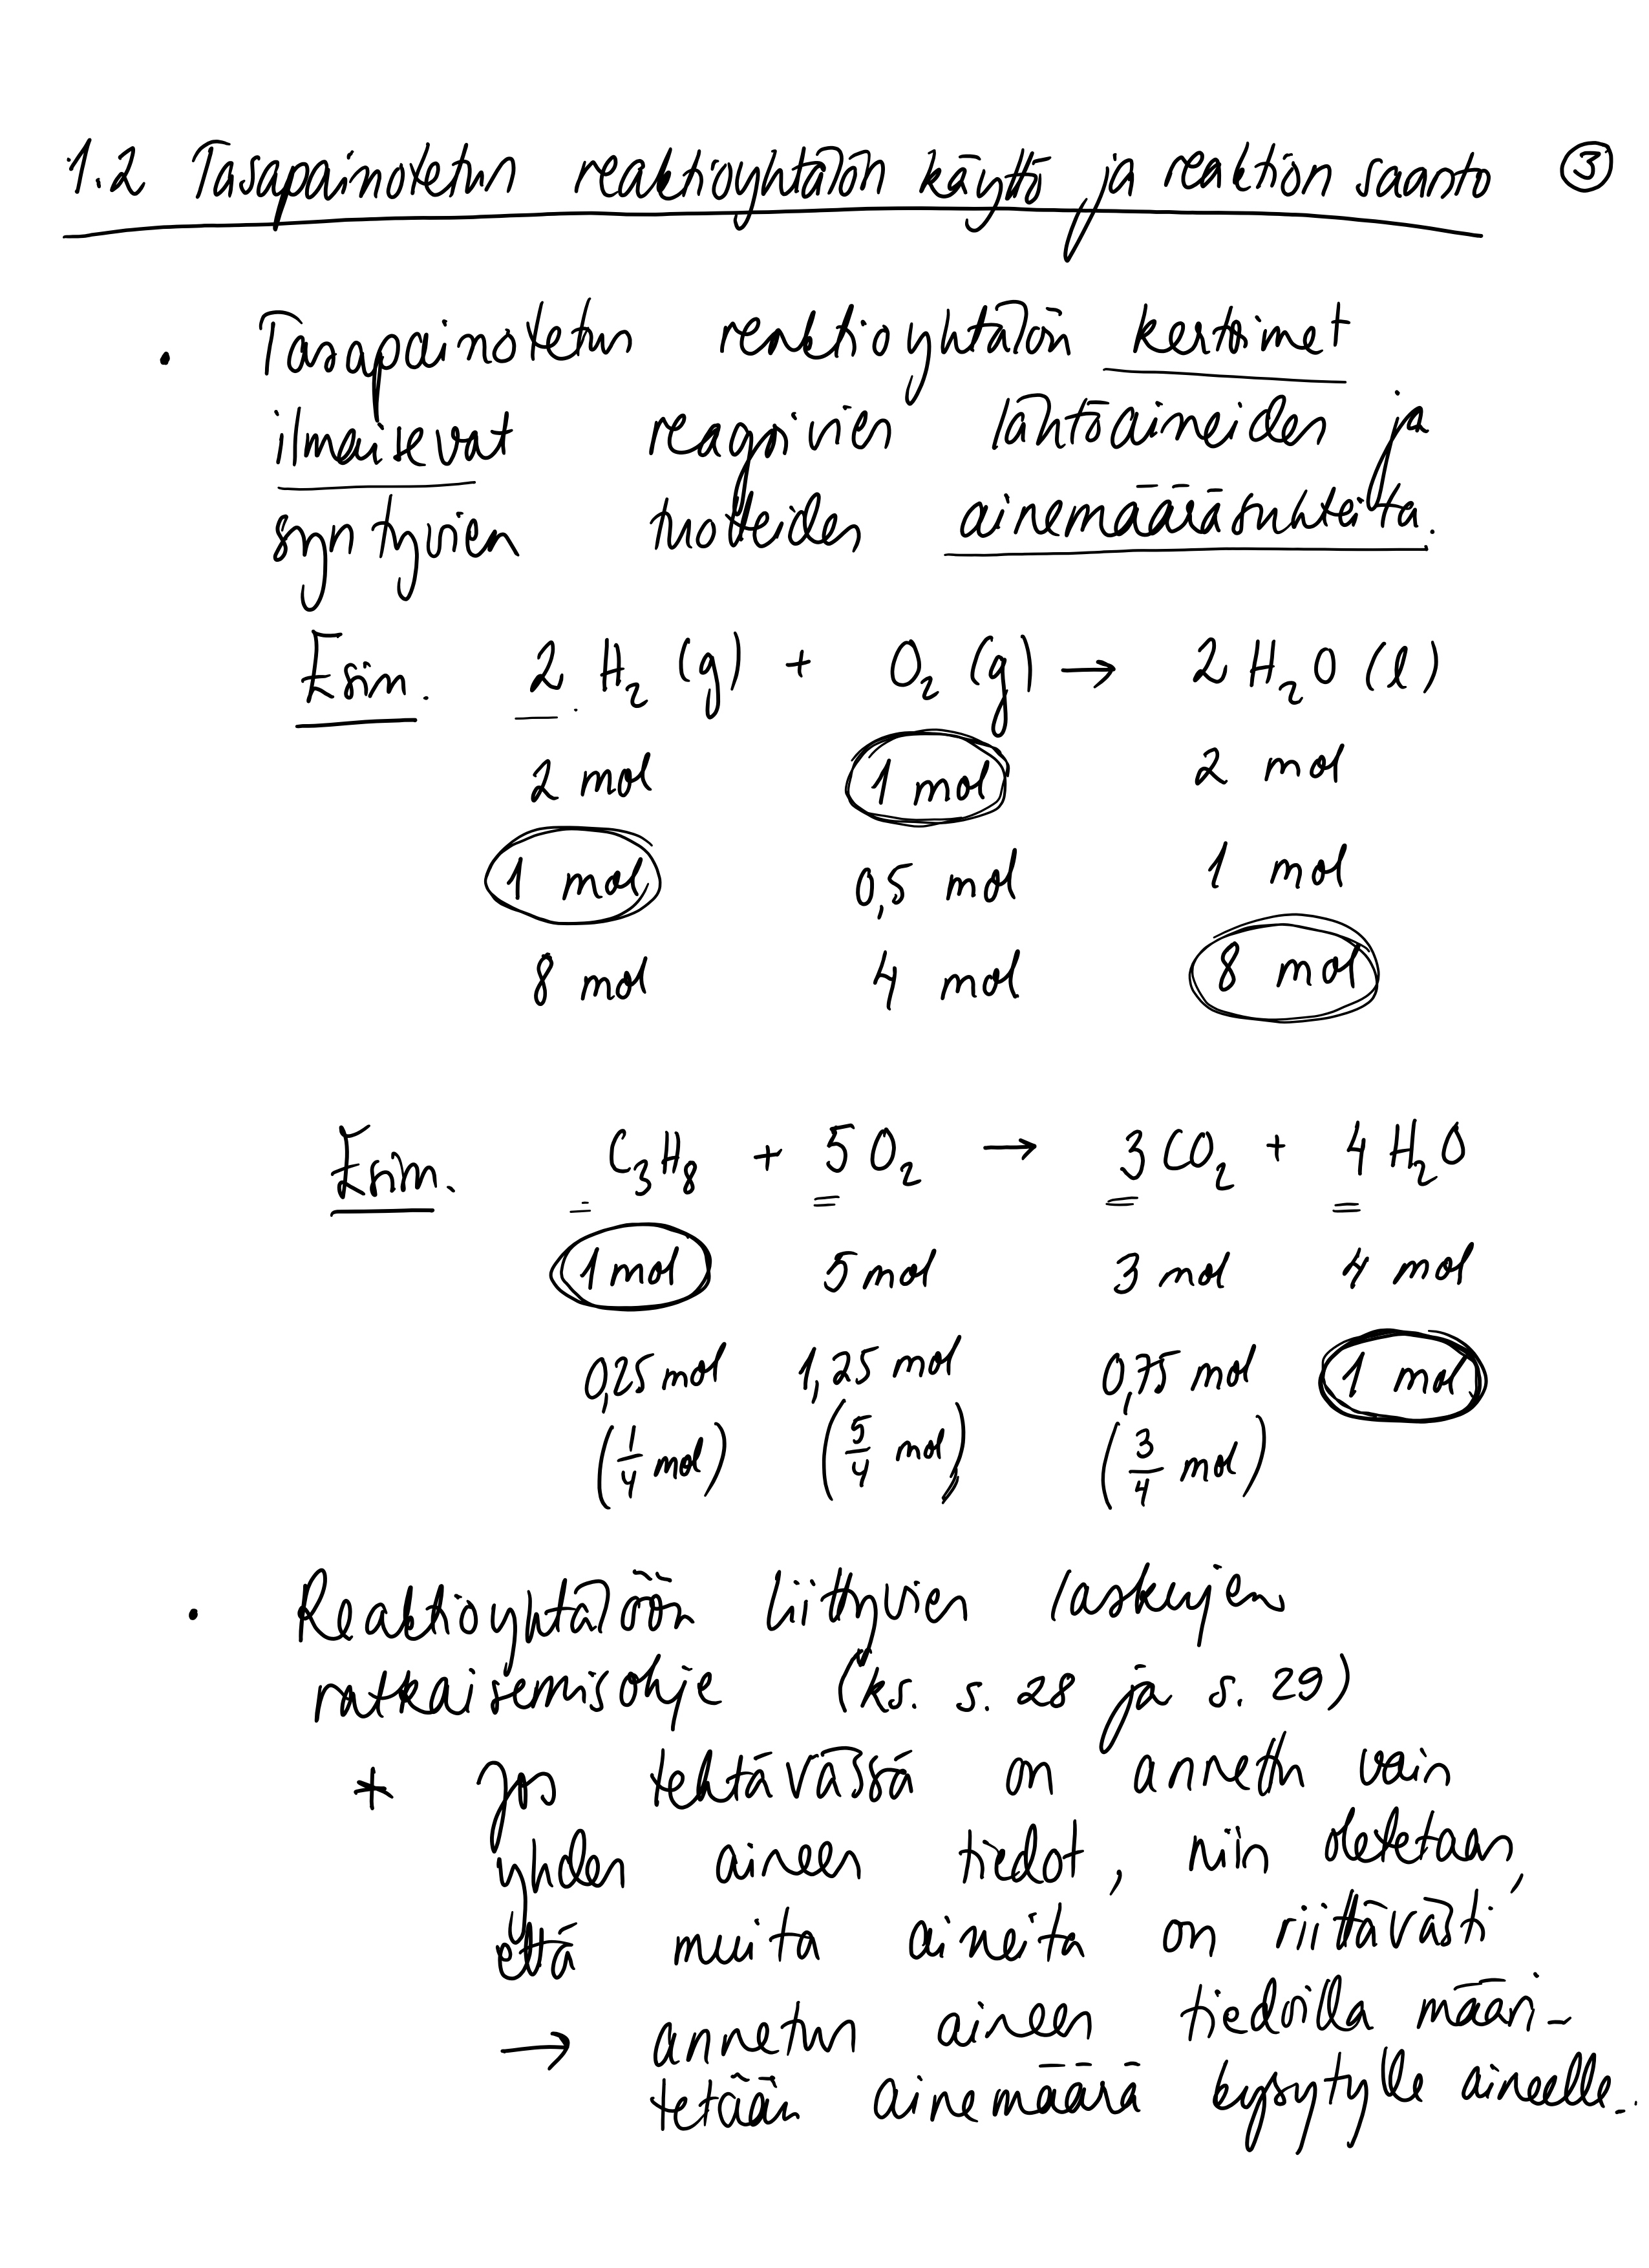 1.2 Tasapainotetun reaktioyhtälön käyttö ja reaktion saanto ③
• Tasapainotetun reaktioyhtälön kertoimet
ilmaisevat reagoivien lähtöaineiden ja
syntyvien tuotteiden ainemääräsuhteita.
Esim. 2 H₂ (g) + O₂ (g) → 2 H₂O (l)
2 mol 1 mol 2 mol
1 mol 0,5 mol 1 mol
8 mol 4 mol 8 mol
Esim. C₃H₈ + 5 O₂ → 3 CO₂ + 4 H₂O
1 mol 5 mol 3 mol 4 mol
0,25 mol 1,25 mol 0,75 mol 1 mol
(1/4 mol) (5/4 mol) (3/4 mol)
• Reaktioyhtälöön liittyvien laskujen
ratkaisemisohje (ks. s. 28 ja s. 29)
* Jos tehtävässä on annettu vain
yhden aineen tiedot, niin oletetaan,
että muita aineita on riittävästi
→ annetun aineen tiedoilla määri-
tetään ainemäärä kysytylle aineelle.